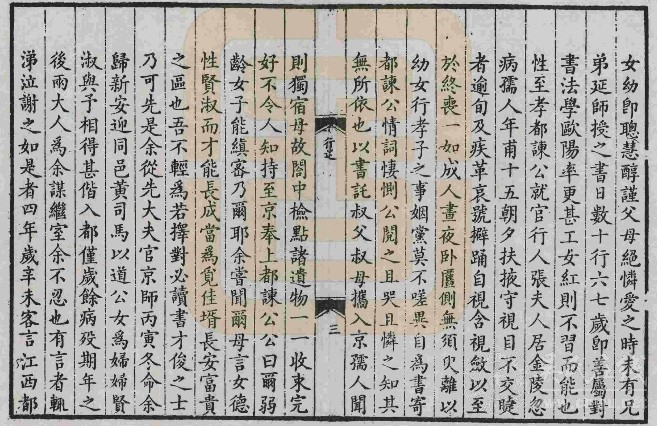 女幼卽聰慧醇謹父母絕憐愛之時未有兄
弟延師授之書日數十行六七歲卽善屬對
書法學歐陽率更甚工女紅則不習而能也
性至孝都諫公就官行人張夫人居金陵忽
病孺人年甫十五朝夕扶掖守視目不交睫
者逾旬及疾革哀號擗踊自視含視斂以至
於終喪一如成人晝夜卧匶側無須臾離以
幼女行孝子之事姻黨莫不嗟異自爲書寄
都諫公情詞悽惻公閱之且哭且憐之知其
無所依也以書託叔父叔母攜入京孺人聞
行述
三
則獨宿母故閤中檢點諸遺物一一收束完
好不令人知持至京奉上都諫公公曰爾弱
齡女子能縝審乃爾耶余嘗聞爾母言女德
性賢淑而才能長成當爲覓佳壻長安富貴
之區也吾不輕爲若擇對必讀書才俊之士
乃可先是余從先大夫官京師丙寅冬命余
歸新安迎同邑黃司馬以道公女爲婦婦賢
淑與予相得甚偕入都僅歲餘病歿期年之
後兩大人爲余謀繼室余不忍也有言者輒
涕泣謝之如是者四年歲辛未客言江西都